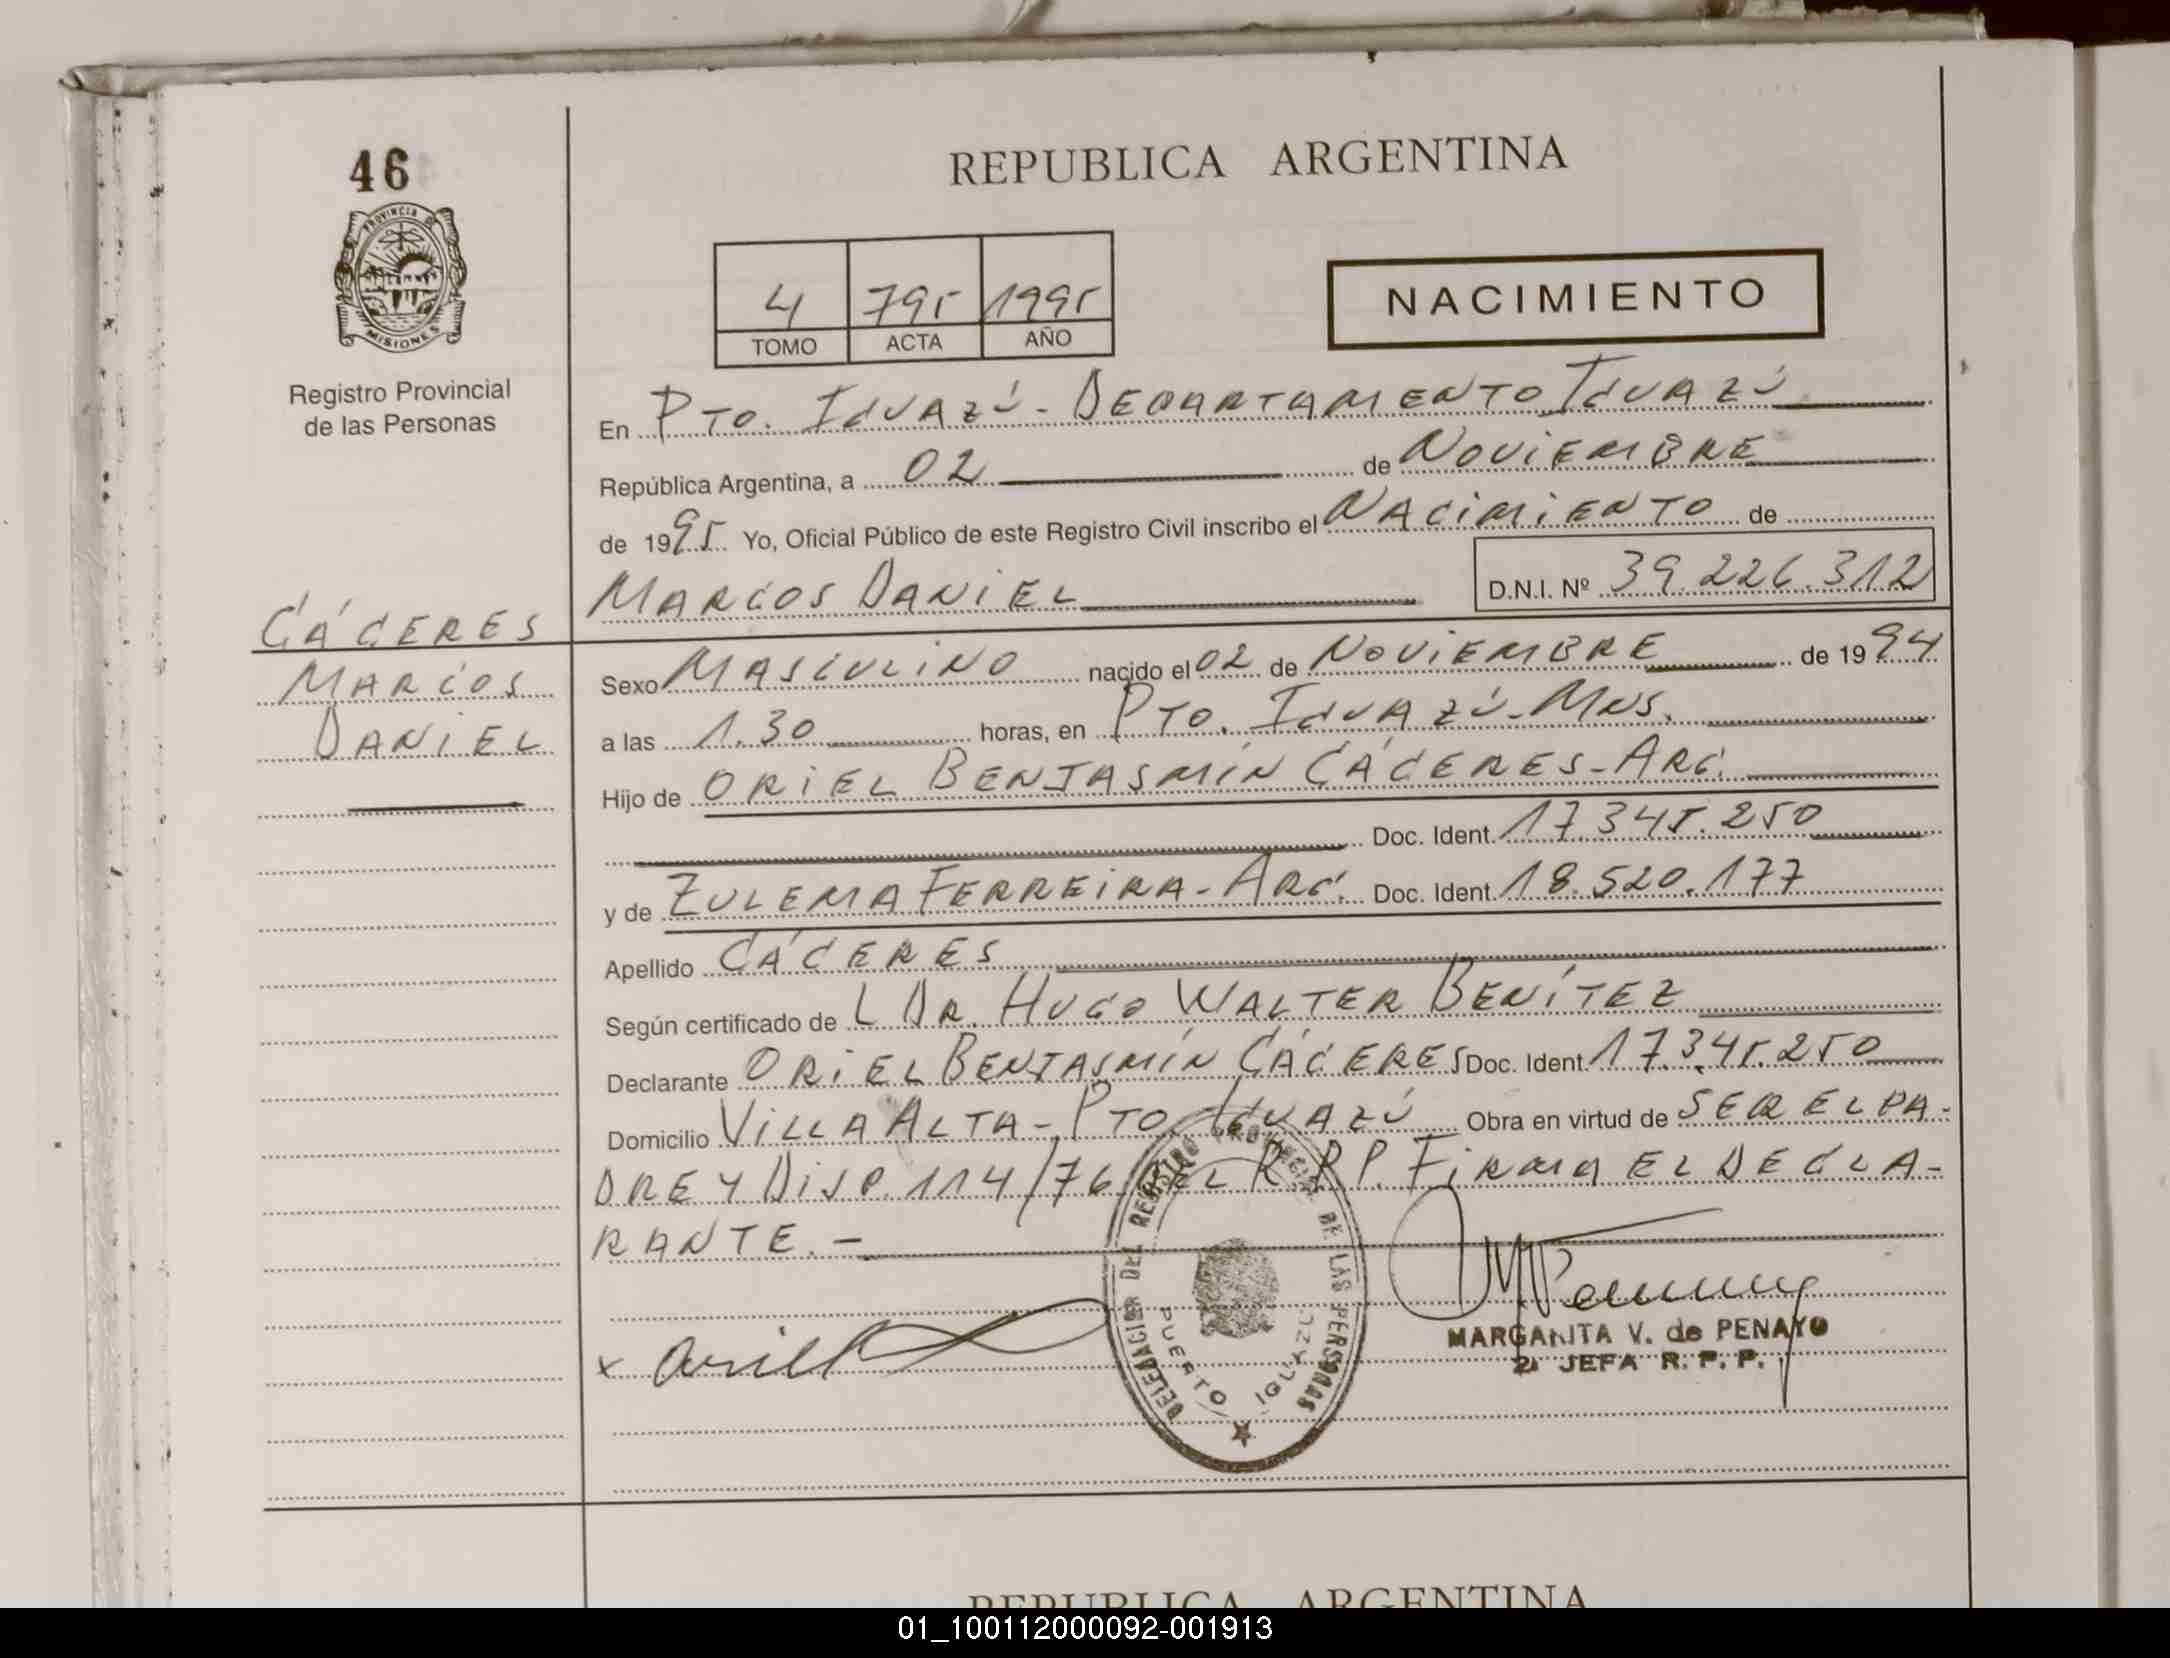 46
PROVINCIA DE
MISIONES
Registro Provincial
de las Personas
REPUBLICA ARGENTINA
4 795 1995
TOMO ACTA AÑO
NACIMIENTO
En PTO. IGUAZÚ - DEPARTAMENTO IGUAZÚ
República Argentina, a 02 de NOVIEMBRE
de 1995 Yo, Oficial Público de este Registro Civil inscribo el NACIMIENTO de
MARCOS DANIEL D.N.I. Nº 39.226.312
CÁCERES
MARCOS
DANIEL
Sexo MASCULINO nacido el 02 de NOVIEMBRE de 1994
a las 1.30 horas, en PTO. IGUAZÚ - MNS.
Hijo de ORIEL BENJASMÍN CÁCERES - ARG.
Doc. Ident. 17.345.250
y de ZULEMA FERREIRA - ARG. Doc. Ident. 18.520.177
Apellido CÁCERES
Según certificado de L DR. HUGO WALTER BENÍTEZ
Declarante ORIEL BENJASMÍN CÁCERES Doc. Ident. 17.345.250
Domicilio VILLA ALTA - PTO. IGUAZÚ Obra en virtud de SER EL PA-
DRE Y DISP. 114/76 DEL R.P.P. FIRMA EL DECLA-
RANTE. -
DELEGACION DEL REGISTRO PROVINCIAL DE LAS PERSONAS
PUERTO IGUAZU
MARGARITA V. de PENAYO
2ª JEFA R. P. P.
REPUBLICA ARGENTINA
01_100112000092-001913